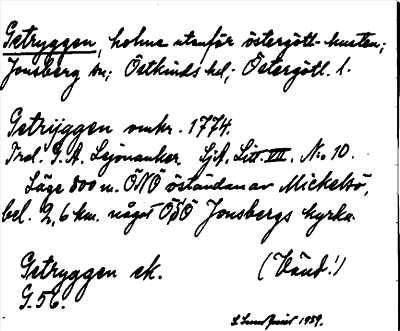 Getryggen, holme utanför östergötl-kusten;
Jonsberg sn; Östkinds hd; Östergötl. l.
Getrÿggen omkr. 1774.
Trol. G. A. Lejonanker, Sjk. Litt. VII, N:o 10.
Läge 800 m. ÖNÖ öständan av Mickelsö,
bel. 2,6 km. något ÖSÖ Jonsbergs kyrka.
Getryggen ek. (Vänd!)
G. 56.
1959.